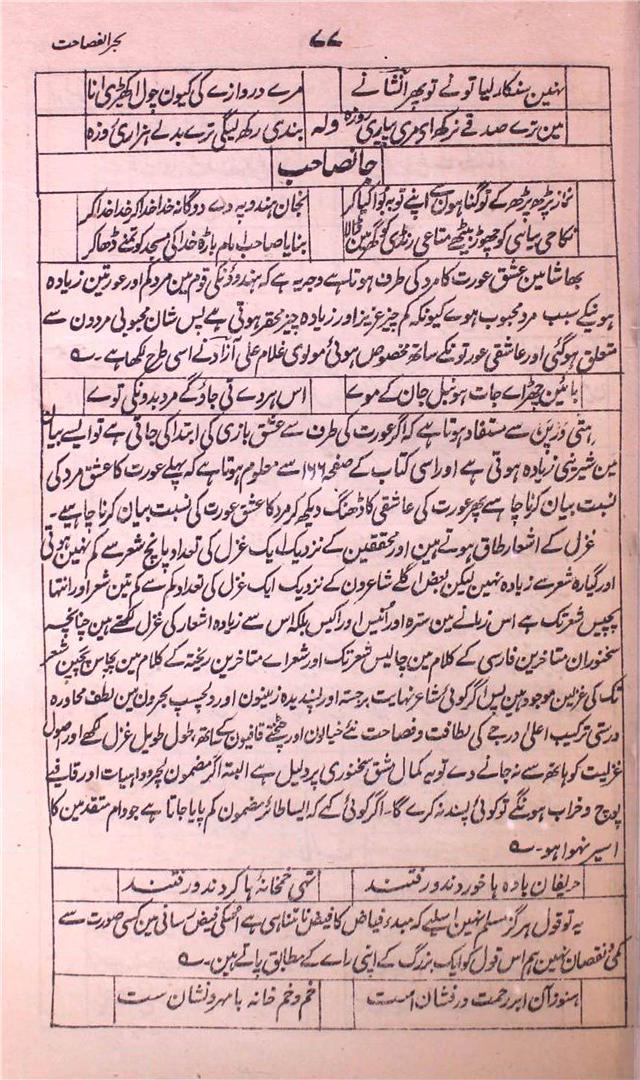 بحر الفصاحت ۷۷
نہین سنکار لیا تونے تو پھر آتشا نے مرے دروازے کی کیون چول اکھڑی انا
مین ترے صدقے نرکھ اے مری پیاری روزہ ولہ بندی رکھ لیگی ترے بدلے ہزاری روزہ
جانصاحب
نماز پڑھ پڑھ کے تو گناہون سے اپنے توبہ بوا کیا کر ہندو پہ دے دوگانہ خدا خدا کر خدا خدا کر
نکاحی بیاہی کو چھوڑ بیٹھے متاعی رنڈی کو گھر مین ڈالا بنایا صاحب امام باڑہ خدا کی مسجد کو تمنے ڈھا کر
بھاشا مین عشق عورت کا مرد کی طرف ہوتا ہے وجہ یہ ہے کہ ہندوونکی قوم مین مرد کم اور عورتین زیادہ
ہونیکے سبب مرد محبوب ہوے کیونکہ کم چیز عزیز اور زیادہ چیز محقر ہوتی ہے پس شان محبوبی مردون سے
متعلق ہوگئی اور عاشقی عورتونکے ساتھ مخصوص ہوئی مولوی غلام علی آزاد نے اسی طرح لکھا ہے ؎
بانہین چھڑاے جات ہو نبل جان کے موے اس ہردے تی جاؤگے مرد بدونگی توے
سے مستفاد ہوتا ہے کہ اگر عورت کی طرف سے عشق بازی کی ابتدا کی جاتی ہے تو ایسے بیان
مین شیرینی زیادہ ہوتی ہے اور اسی کتاب کے صفحہ ۱۶۶ سے معلوم ہوتا ہے کہ پہلے عورت کا عشق مرد کی
نسبت بیان کرنا چاہیے پھر عورت کی عاشقی کا ڈھنگ دیکھ کر مرد کا عشق عورت کی نسبت بیان کرنا چاہیے۔
غزل کے اشعار طاق ہوتے ہین اور محققین کے نزدیک ایک غزل کی تعداد پانچ شعر سے کم نہین ہوتی
اور گیارہ شعر سے زیادہ نہین لیکن بعض اگلے شاعرون کے نزدیک ایک غزل کی تعداد کم سے کم تین شعر اور انتہا
پچیس شعر تک ہے اس زمانے مین سترہ اور انیس اور اکیس بلکہ اس سے زیادہ اشعار کی غزل لکھتے ہین چنانچہ
سخنوران متاخرین فارسی کے کلام مین چالیس شعر تک اور شعراے متاخرین ریختہ کے کلام مین پچاس پچپن شعر
تک کی غزلین موجود ہین پس اگر کوئی شاعر نہایت برجستہ اور پسندیدہ زمینون اور دلچسپ بحرون مین لطف محاورہ
درستی ترکیب اعلیٰ درجے کی لطافت و فصاحت نئے خیالون اور اچھے اچھے قافیون کے ساتھ طول طویل غزل لکھے اور اصول
غزلیت کو ہاتھ سے نہ جانے دے تو یہ کمال مشق سخنوری پر دلیل ہے البتہ اگر مضمون لچر و واہیات اور قافیے
پوچ و خراب ہونگے تو کوئی پسند نہ کرے گا۔ اگر کوئی کہے کہ ایسا طائر مضمون کم پایا جاتا ہے جو دام متقدمین کا
اسیر نہوا ہو۔ ؎
حریفان بادہ ہا خوردند و رفتند تہی خمخانہ ہا کردند و رفتند
یہ تو قول ہرگز مسلم نہین اسلیے کہ مبدء فیاض کا فیض نامتناہی ہے اسکی فیض رسانی مین کسی صورت سے
کمی و نقصان نہین ہم اس قول کو ایک بزرگ کے اپنی راے کے مطابق پاتے ہین۔ ؎
ہنوز آن ابر رحمت درفشان است خم و خم خانہ با مہر و نشان ست